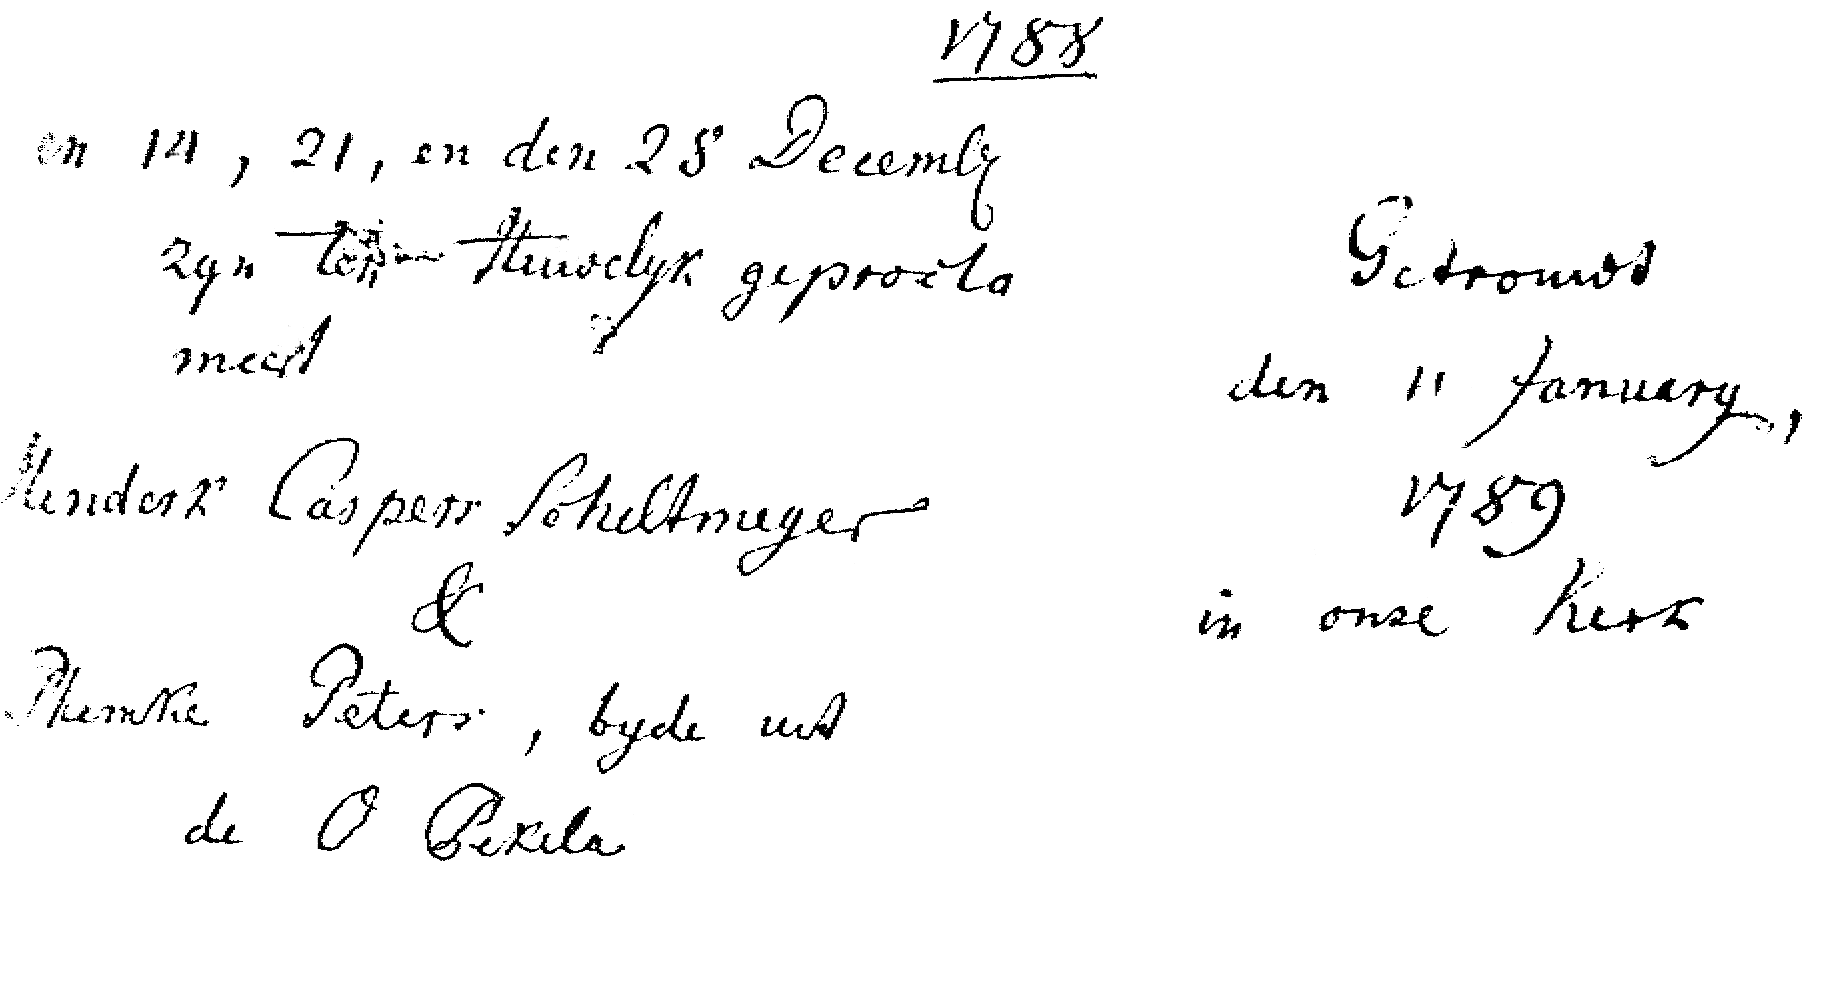 1788
en 14, 21, en den 28 Decemb
zyn ten Huwelyk geprocla
meert
Getrouwt
den 11 January,
1789
in onse Kerk
Henderk Caspers Scheltmeyer
&
Themke Peters, byde uit
de O Pekela